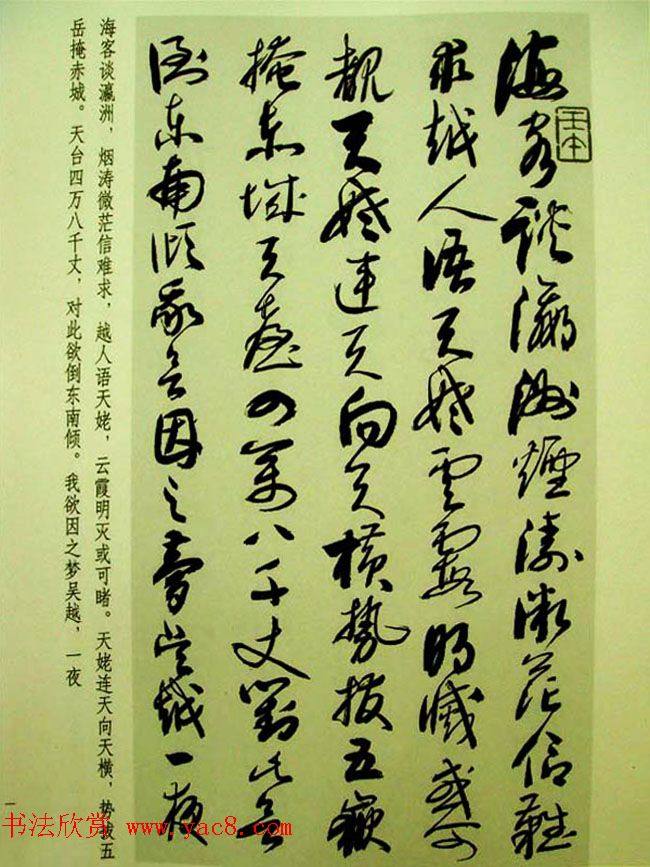 海客談瀛洲煙濤微茫信難
求越人語天姥雲霞明滅或可
覩天姥連天向天橫勢拔五嶽
掩赤城天臺四萬八千丈對此欲
倒東南傾我欲因之夢吳越一夜
海客谈瀛洲，烟涛微茫信难求，越人语天姥，云霞明灭或可睹。天姥连天向天横，势拔五
岳掩赤城。天台四万八千丈，对此欲倒东南倾。我欲因之梦吴越，一夜
一
书法欣赏 www.yac8.com